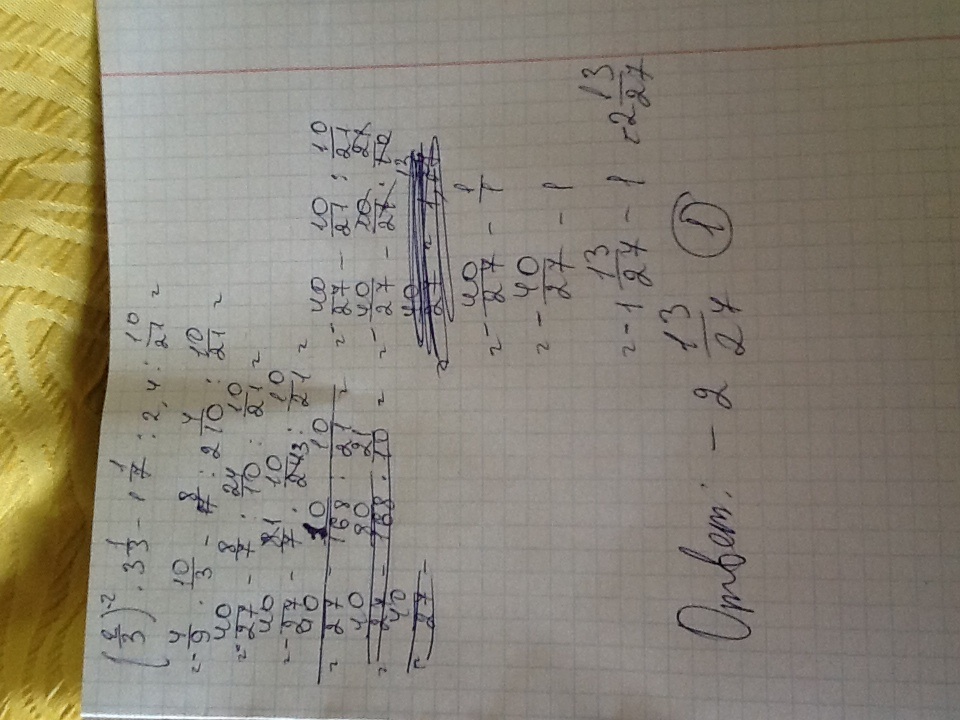 (2/3)⁻² · 3 1/3 - 1 1/7 : 2,4 : 10/21 =
= - 4/9 · 10/3 - 8/7 : 2 4/10 : 10/21 =
= - 40/27 - 8/7 : 24/10 : 10/21 =
= - 40/27 - 8/7 · 10/24 : 10/21 =
= 40/27 - 10/168 : 10/21 =
= 40/27 - 80/168 · 21/10 =
= 40/27 -
= - 40/27 - 10/21 : 10/21
= - 40/27 - 10/21 · 21/10
= - 40/27 - 1/1
= - 40/27 - 1
= - 1 13/27 - 1 = 2 13/27
Ответ: - 2 13/27 1)